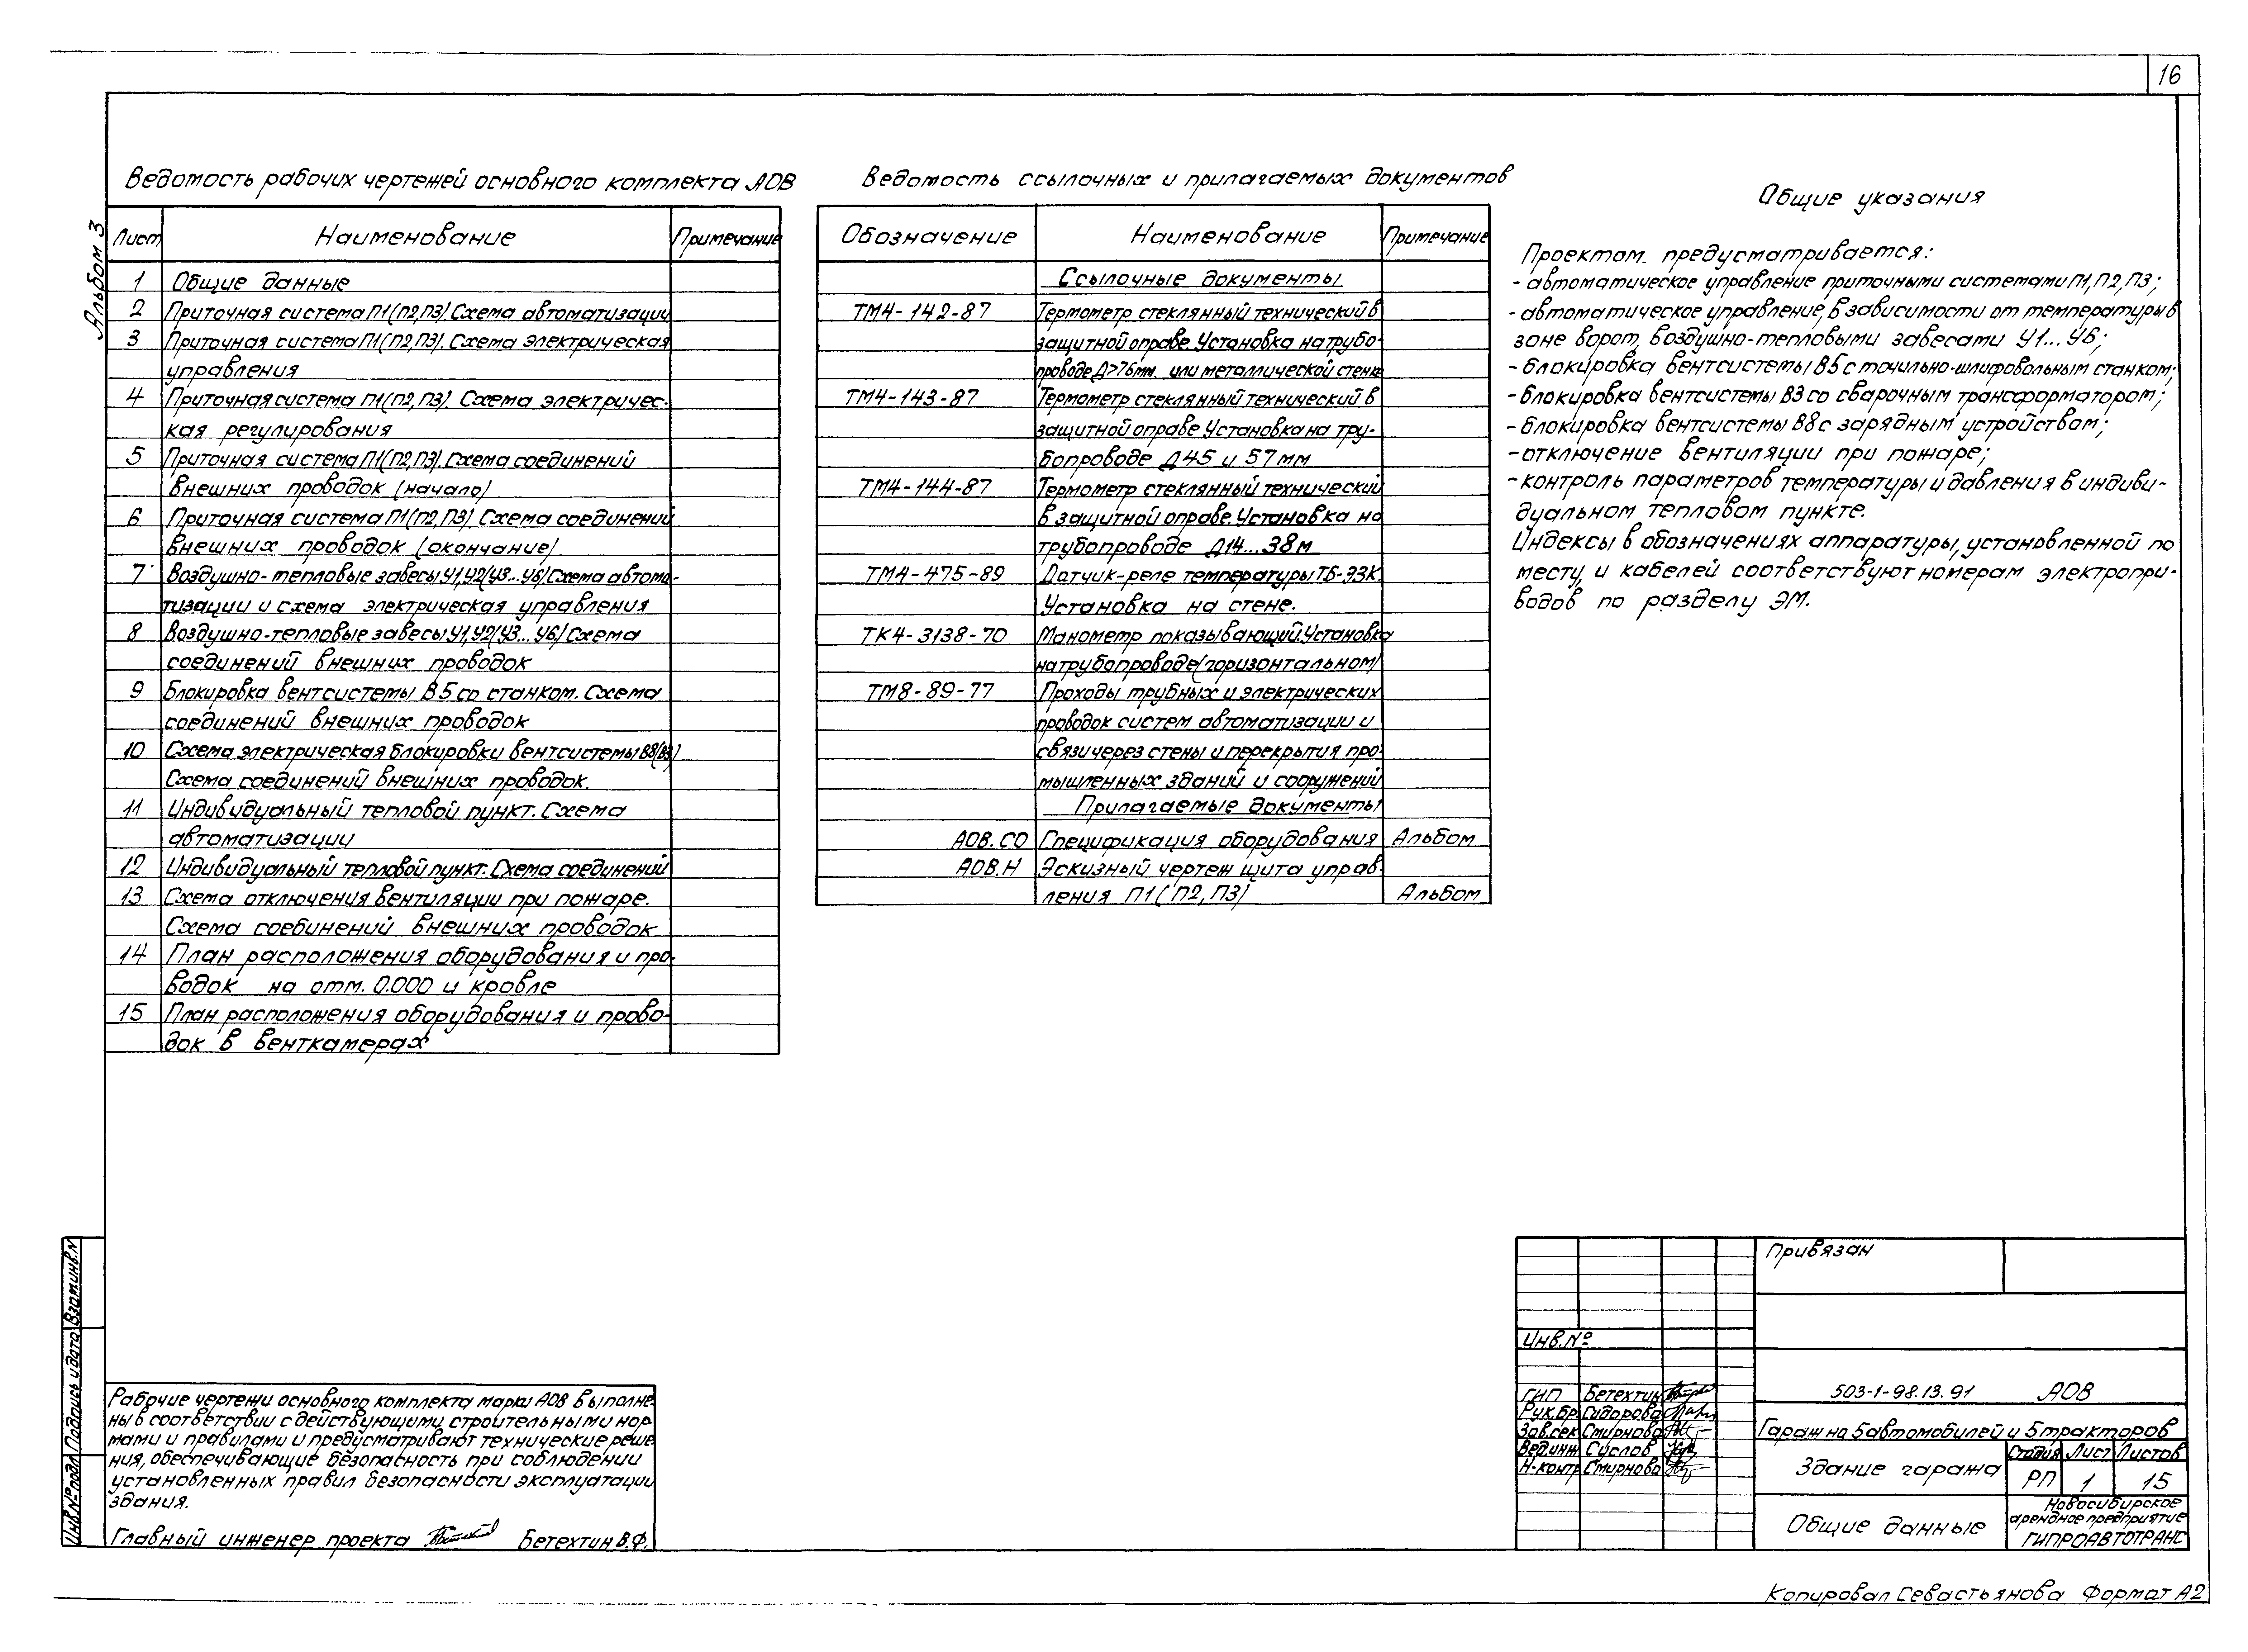 16
Альбом 3
Ведомость рабочих чертежей основного комплекта АОВ
Лист Наименование Примечание
1 Общие данные
2 Приточная система П1(П2,П3). Схема автоматизации
3 Приточная система П1(П2,П3). Схема электрическая
управления
4 Приточная система П1(П2,П3). Схема электричес-
кая регулирования
5 Приточная система П1(П2,П3). Схема соединений
внешних проводок (начало)
6 Приточная система П1(П2,П3). Схема соединений
внешних проводок (окончание)
7 Воздушно-тепловые завесы У1,У2(У3...У6) Схема автома-
тизации и схема электрическая управления
8 Воздушно-тепловые завесы У1,У2(У3...У6) Схема
соединений внешних проводок
9 Блокировка вентсистемы В5 со станком. Схема
соединений внешних проводок
10 Схема электрическая блокировки вентсистемы В8(В3)
Схема соединений внешних проводок.
11 Индивидуальный тепловой пункт. Схема
автоматизации
12 Индивидуальный тепловой пункт. Схема соединений
13 Схема отключения вентиляции при пожаре.
Схема соединений внешних проводок
14 План расположения оборудования и про-
водок на отм. 0.000 и кровле
15 План расположения оборудования и прово-
док в венткамерах
Ведомость ссылочных и прилагаемых документов
Обозначение Наименование Примечание
Ссылочные документы
ТМ4-142-87 Термометр стеклянный технический в
защитной оправе. Установка на трубо-
проводе Д>76мм. или металлической стенке
ТМ4-143-87 Термометр стеклянный технический в
защитной оправе. Установка на тру-
бопроводе Д45 и 57мм
ТМ4-144-87 Термометр стеклянный технический
в защитной оправе. Установка на
трубопроводе Д14...38м
ТМ4-475-89 Датчик-реле температуры ТБ-ЭЗК.
Установка на стене.
ТК4-3138-70 Манометр показывающий. Установка
на трубопроводе (горизонтальном)
ТМ8-89-77 Проходы трубных и электрических
проводок систем автоматизации и
связи через стены и перекрытия про-
мышленных зданий и сооружений
Прилагаемые документы
АОВ.СО Спецификация оборудования Альбом
АОВ.Н Эскизный чертеж щита управ-
ления П1(П2,П3) Альбом
Общие указания
Проектом предусматривается:
- автоматическое управление приточными системами П1,П2,П3;
- автоматическое управление, в зависимости от температуры в
зоне ворот, воздушно-тепловыми завесами У1...У6;
- блокировка вентсистемы В5 с точильно-шлифовальным станком;
- блокировка вентсистемы В3 со сварочным трансформатором;
- блокировка вентсистемы В8 с зарядным устройством;
- отключение вентиляции при пожаре;
- контроль параметров температуры и давления в индиви-
дуальном тепловом пункте.
Индексы в обозначениях аппаратуры, установленной по
месту, и кабелей соответствуют номерам электропри-
водов по разделу ЭМ.
Рабочие чертежи основного комплекта марки АОВ выполне-
ны в соответствии с действующими строительными нор-
мами и правилами и предусматривают технические реше-
ния, обеспечивающие безопасность при соблюдении
установленных правил безопасности эксплуатации
здания.
Главный инженер проекта Бетехтин В.Ф.
Взам.инв.N
Подпись и дата
Инв.№подл
Привязан
Инв.№
503-1-98.13.91 АОВ
Гараж на 5 автомобилей и 5 тракторов
ГИП Бетехтин
Рук.бр. Сидорова
Зав.сек Смирнова
Вед.инж Суслов
Н-контр Смирнова
Здание гаража
Стадия Лист Листов
РП 1 15
Общие данные
Новосибирское
арендное предприятие
ГИПРОАВТОТРАНС
Копировал Севастьянова Формат А2